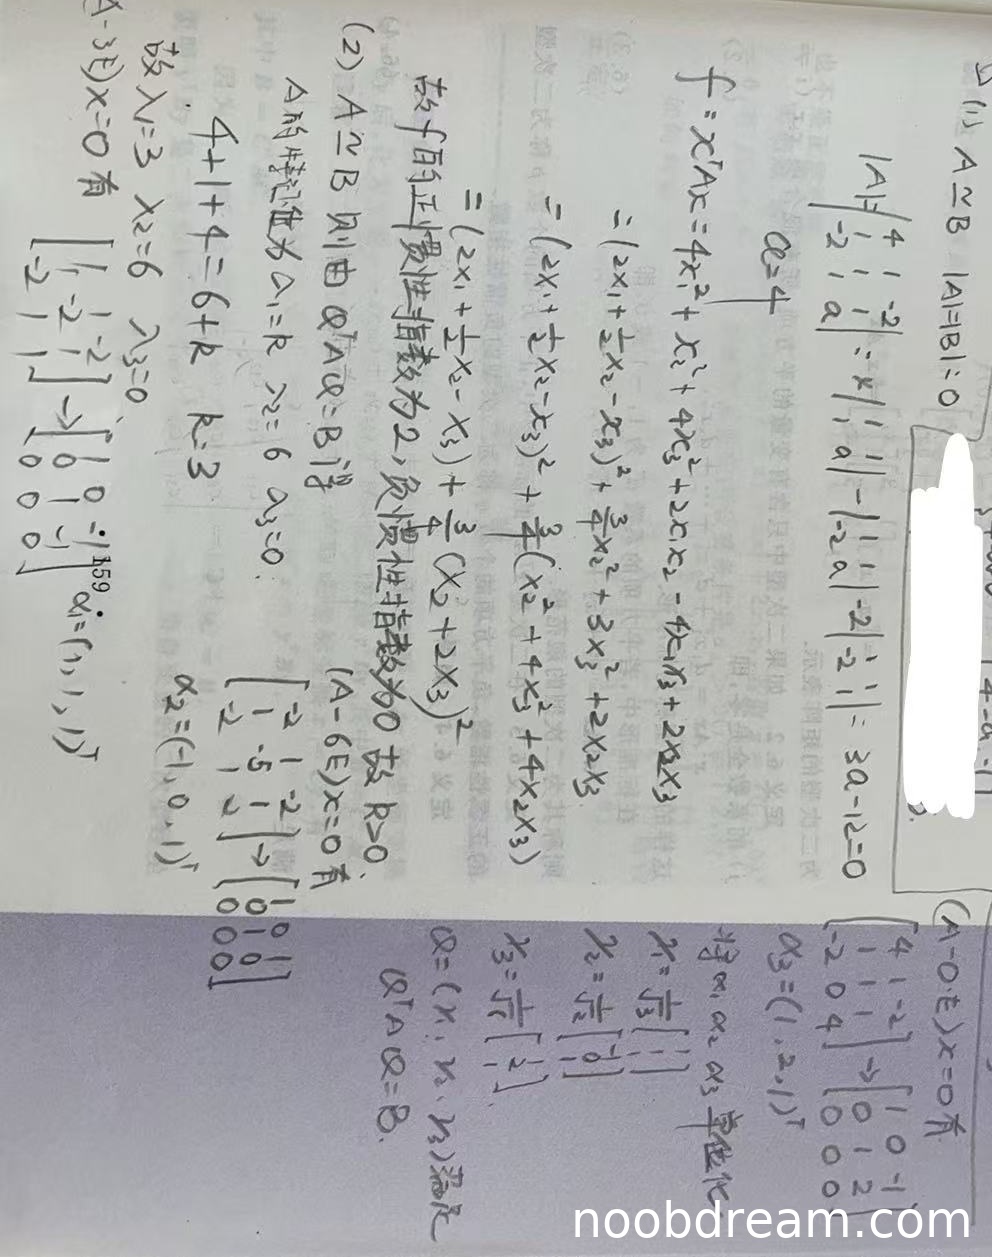 (1) A≃B |A|=|B|=0
|A|=|4 1 -2; 1 1 1; -2 1 a|=4|1 1; 1 a|-1|1 1; -2 a|-2|1 1; -2 1|=3a-12=0
a=4
f=xᵀAx=4x₁²+x₂²+4x₃²+2x₁x₂-4x₁x₃+2x₂x₃
=(2x₁+½x₂-x₃)²+¾x₂²+3x₃²+2x₂x₃
=(2x₁+½x₂-x₃)²+¾(x₂²+4x₃²+4x₂x₃)
=(2x₁+½x₂-x₃)+¾(x₂+2x₃)²
故f的正惯性指数为2,负惯性指数为0 故k>0.
(2) A≃B 则由QᵀAQ=B得
A的特征值为λ₁=k λ₂=6 λ₃=0.
4+1+4=6+k k=3
故λ₁=3 λ₂=6 λ₃=0.
(A-3E)x=0有
[1 1 -2; 1 -2 1; -2 1 1]→[1 0 -1; 0 1 -1; 0 0 0] α₁=(1,1,1)ᵀ
159
(A-6E)x=0有
[-2 1 -2; 1 -5 1; -2 1 -2]→[1 0 1; 0 1 0; 0 0 0]
α₂=(-1,0,1)ᵀ
(A-0·E)x=0有
[4 1 -2; 1 1 1; -2 0 4]→[1 0 -1; 0 1 2; 0 0 0]
α₃=(1,2,1)ᵀ
将α₁ α₂ α₃单位化
γ₁=1/√3[1; 1; 1]
γ₂=1/√2[-1; 0; 1]
Q=(γ₁,γ₂,γ₃)满足
QᵀAQ=B.
noobdream.com